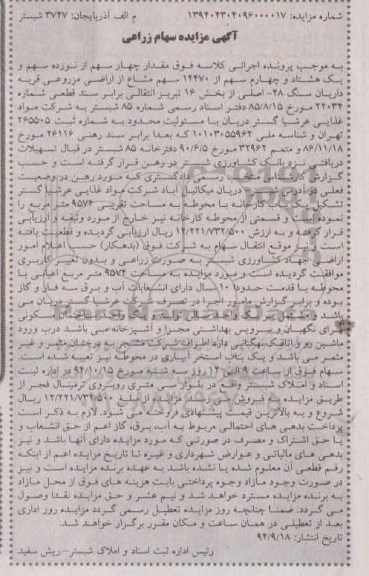 شماره مزایده: ۱۳۹۴۰۴۳۰۴۰۹۶۰۰۰۰۱۷ م الف آذربایجان: ۳۷۴۷ شبستر
آگهی مزایده سهام زراعی
به موجب پرونده اجرائی کلاسه فوق مقدار چهار سهم از نوزده سهم و
یک هشتاد و چهارم سهم از ۱۴۴۷۰ سهم مشاع از اراضی مزروعی قریه
داریان سنگ ۲۸- اصلی از بخش ۱۶ تبریز انتقالی برابر سند قطعی شماره
۲۲۰۳۴ مورخ ۸۵/۸/۱۵ دفتر اسناد رسمی شماره ۸۵ شبستر به شرکت مواد
غذایی عرشیا گستر دریان با مسئولیت محدود به شماره ثبت ۲۶۵۵۰۵
تهران و شناسه ملی ۱۰۱۰۳۰۵۵۹۶۲ که بعدا برابر سند رهنی ۲۶۱۱۶ مورخ
۸۶/۱۱/۱۸ و متمم ۳۲۹۶۲ مورخ ۹۰/۶/۵ دفترخانه ۸۵ شبستر در قبال تسهیلات
دریافتی نزد بانک کشاورزی شبستر در رهن قرار گرفته است و حسب
گزارش کارشناس رسمی دادگستری که مورد رهن در وضعیت
فعلی در آدرس دریان میکائیل آباد شرکت مواد غذایی عرشیا گستر
تشکیل یک باب کارخانه با محوطه به مساحت تقریبی ۹۵۷۴ مترمربع را
نموده و قسمتی از محوطه کارخانه نیز خارج از مورد وثیقه و ارزیابی
قرار گرفته و به ارزش ۱۲/۲۲۱/۷۳۲/۵۰۰ ریال ارزیابی گردیده و قطعیت یافته
است و در موقع انتقال سهام به شرکت فوق (بدهکار) حسب اعلام امور
اراضی جهاد کشاورزی شبستر به صورت زراعی و بدون تغییر کاربری
موافقت گردیده است و مورد مزایده به مساحت ۹۵۷۴ متر مربع اعیانی با
محوطه با قدمت حدودا ۱۰ سال دارای انشعابات آب و برق سه فاز و گاز
بوده و برابر گزارش مامور اجرا در تصرف شرکت عرشیا گستر دریان می
باشد
برای نگهبان و سرویس بهداشتی مجزا و آشپزخانه می باشد درب ورود
ماشین رو و اتاقک نگهبانی دارد اطراف شرکت مشجر به درختان مثمر و غیر
مثمر می باشد و یک باب استخر آبیاری در محوطه نیز تعبیه شده است.
سهام فوق از ساعت ۹ الی ۱۲ روز سه شنبه مورخ ۹۴/۱۰/۱۵ در اداره ثبت
اسناد و املاک شبستر واقع در بلوار سی متری روبروی ترمینال فجر از
طریق مزایده به فروش می رسد. مزایده از مبلغ ۱۲/۲۲۱/۷۳۲/۵۰۰ ریال
شروع و به بالاترین قیمت پیشنهادی فروخته می شود. لازم به ذکر است
پرداخت بدهی های احتمالی مربوط به آب، برق، گاز اعم از حق انشعاب و
یا حق اشتراک و مصرف در صورتی که مورد مزایده دارای آنها باشد و نیز
بدهی های مالیاتی و عوارض شهرداری و غیره تا تاریخ مزایده اعم از اینکه
رقم قطعی آن معلوم شده یا نشده باشد به عهده برنده مزایده است و نیز
در صورت وجود مازاد وجوه پرداختی بابت هزینه های فوق از محل مازاد
به برنده مزایده مسترد خواهد شد و نیم عشر و حق مزایده نقدا وصول
می گردد. ضمنا چنانچه روز مزایده تعطیل رسمی گردد مزایده روز اداری
بعد از تعطیلی در همان ساعت و مکان مقرر برگزار خواهد شد.
تاریخ انتشار: ۹۴/۹/۱۸
رئیس اداره ثبت اسناد و املاک شبستر- ریش سفید